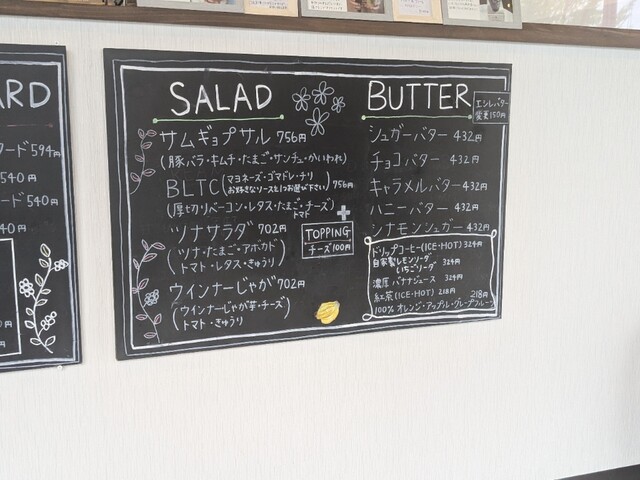 ARD
ード 594円
540
540円
540
SALAD
サムギョプサル 756円
(豚バラ・キムチ・たまご・サンチュ・かいわれ)
BLTC(マヨネーズ・ゴマドレ・チリ
お好きなソースを1つお選び下さい) 756円
(厚切りベーコン・レタス・たまご・チーズ)
トマト
ツナサラダ 702円
(ツナ・たまご・アボカド
トマト・レタス・きゅうり)
ウインナーじゃが 702円
(ウインナー・じゃが芋・チーズ
トマト・きゅうり)
+
TOPPING
チーズ 100円
BUTTER
エシレバター
変更150円
シュガーバター 432円
チョコバター 432円
キャラメルバター 432円
ハニーバター 432円
シナモンシュガー 432円
ドリップコーヒー(ICE・HOT) 324円
自家製レモンソーダ
いちごソーダ 324円
濃厚バナナジュース 324円
紅茶(ICE・HOT) 218円
218円
100% オレンジ・アップル・グレープフルーツ